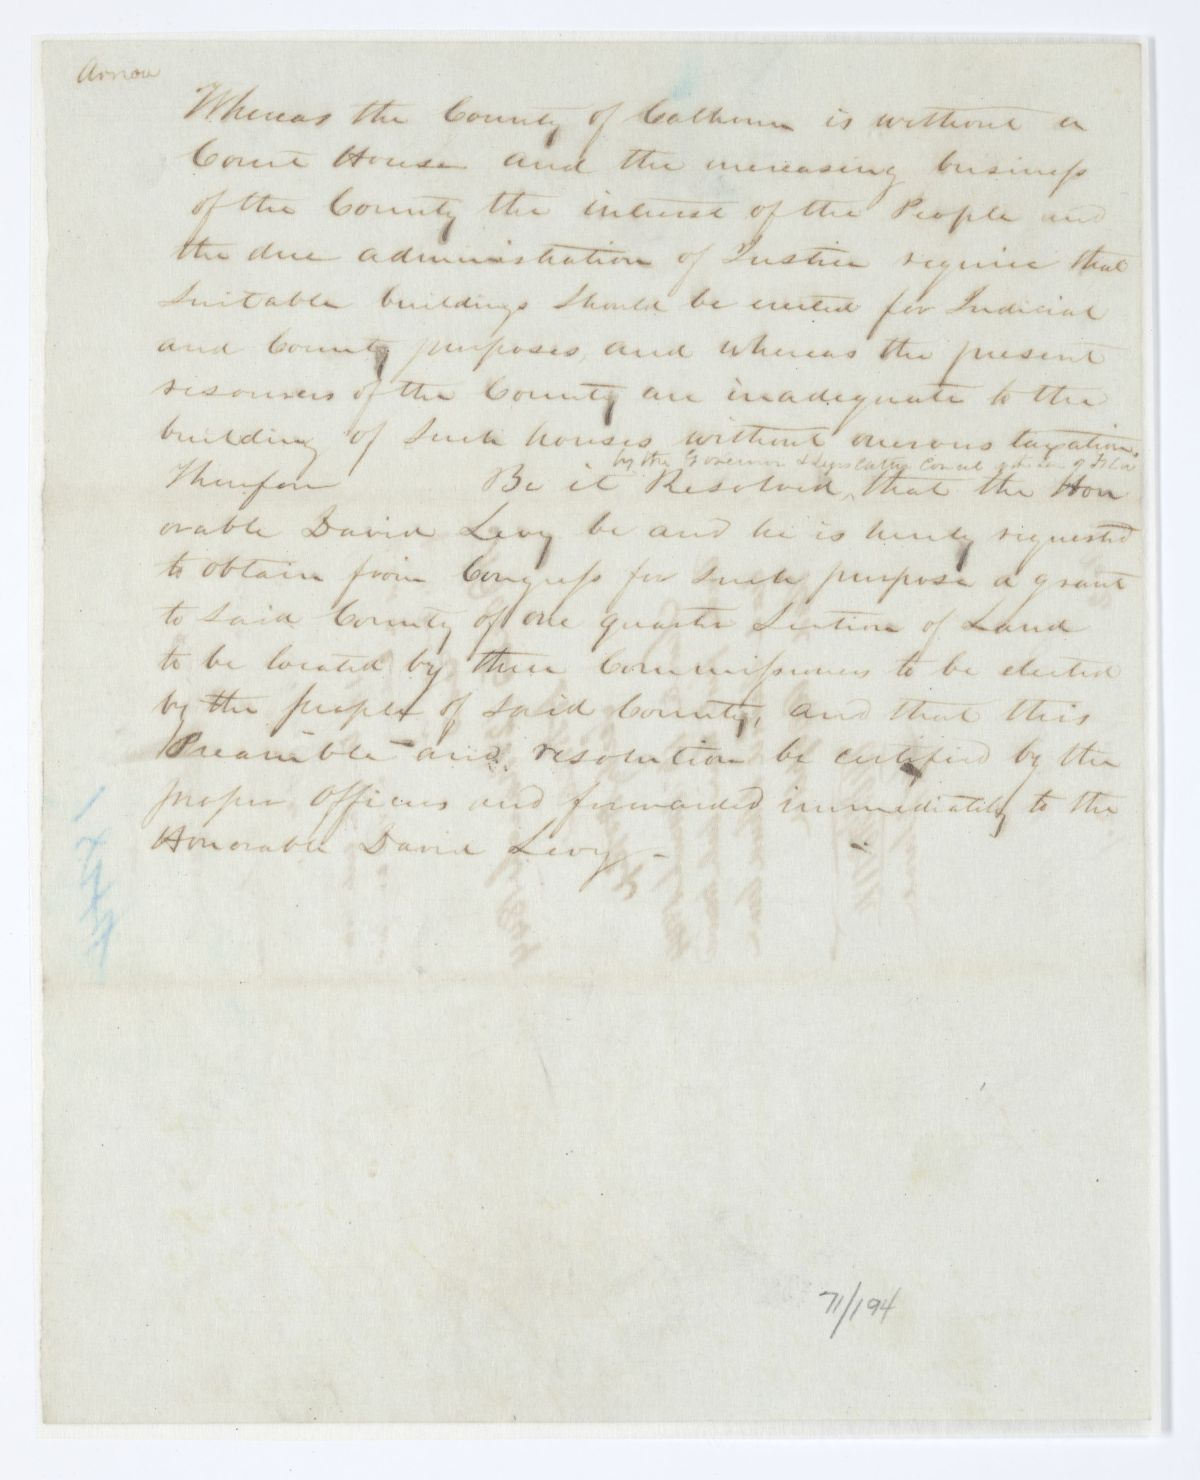 Arnow
Whereas the County of Calhoun is without a
Court House and the increasing business
of the County the interest of the People and
the due administration of Justice require that
Suitable buildings Should be erected for Judicial
and County purposes, and whereas the present
resources of the County are inadequate to the
building of Such houses without onerous taxation,
by the Governor & Legislative Council of Flor
Therefore Be it Resolved, that the Hon
orable David Levy be and he is hereby requested
to obtain from Congress for such purpose a grant
to Said County of one quarter Section of Land
to be located by three Commissioners to be elected
by the people of Said County, and that this
Preamble and resolution be certified by the
proper Officers and forwarded immediately to the
Honorable David Levy -
71/194